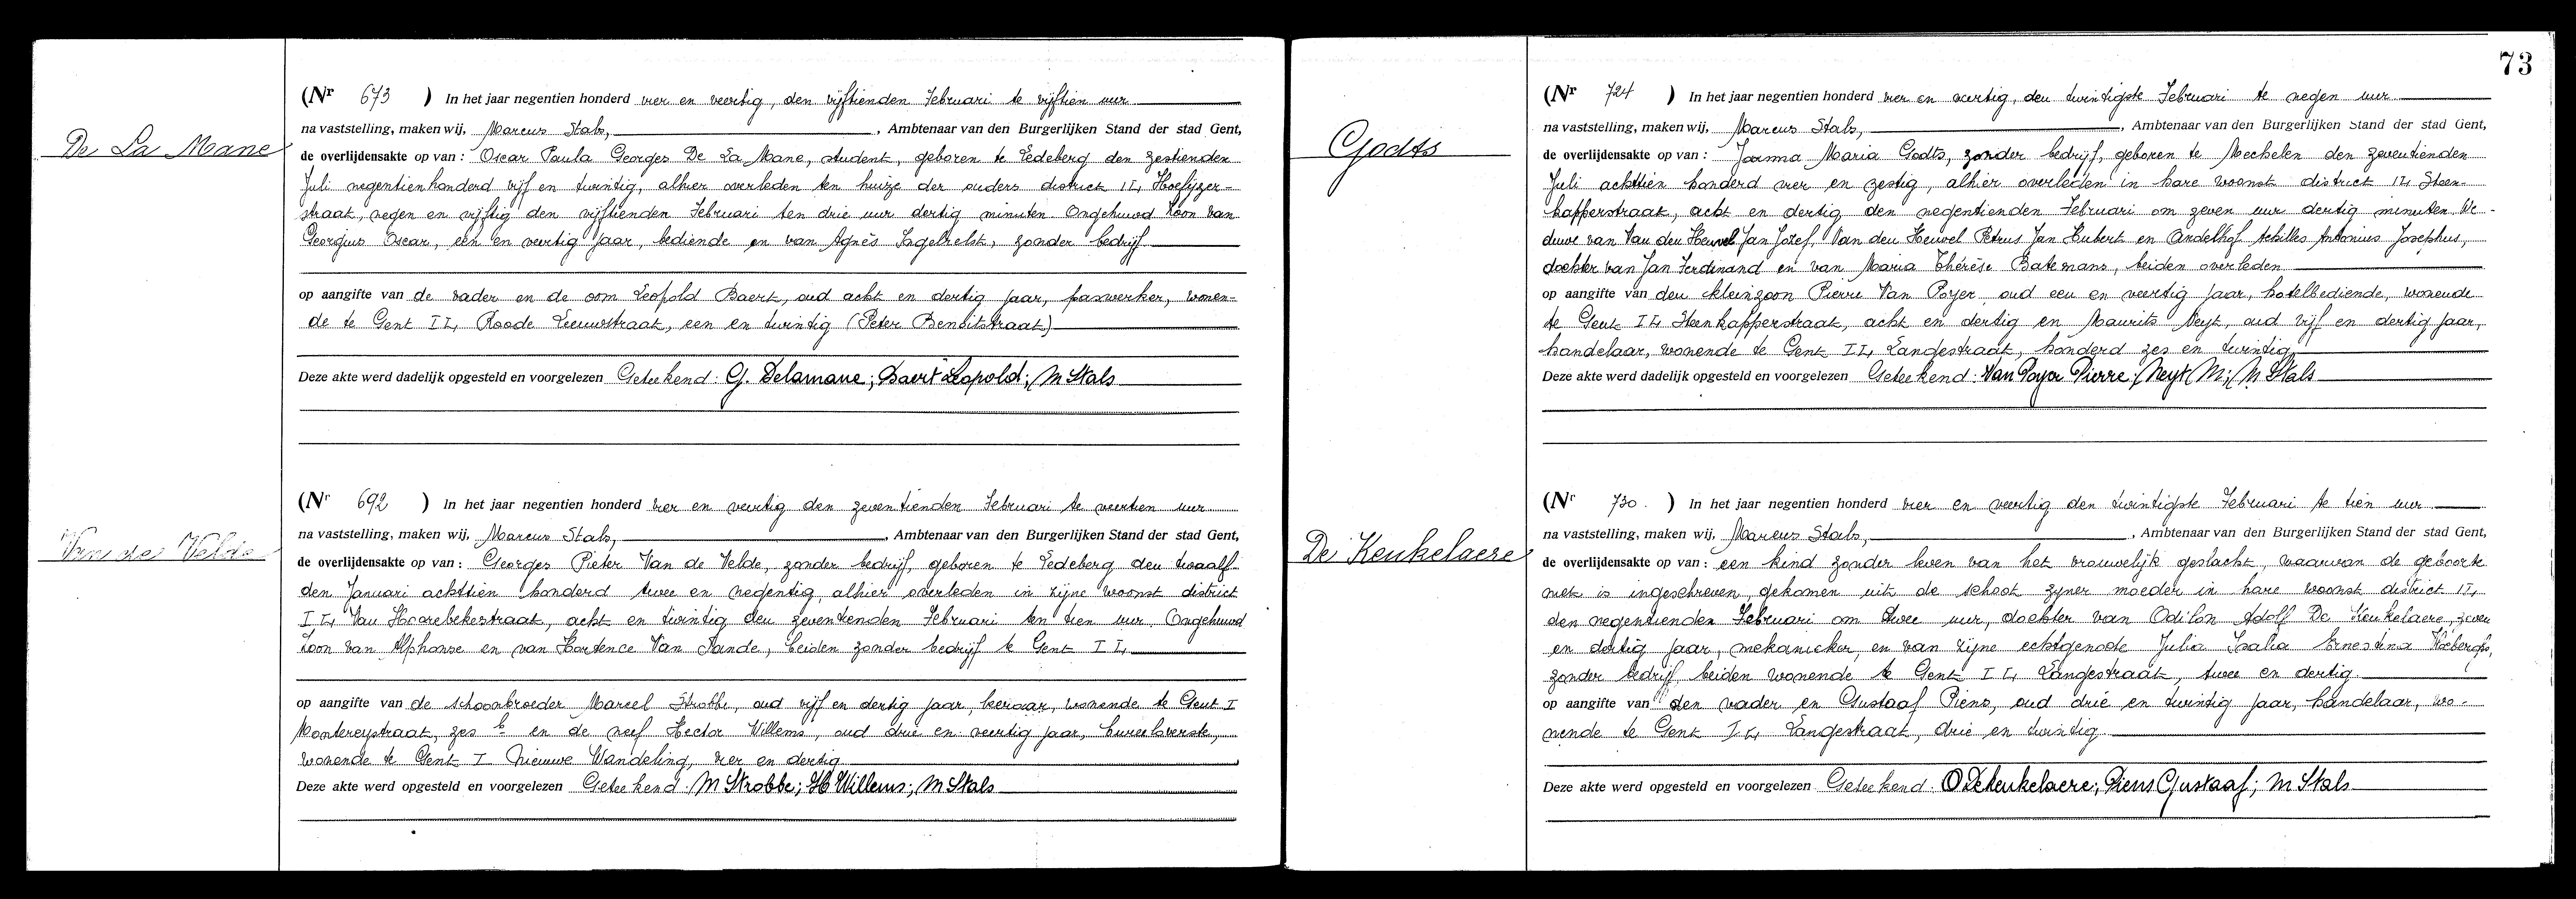 De La Mane
(Nr 673 ) In het jaar negentien honderd vier en veertig, den vijftienden Februari te vijftien uur
na vaststelling, maken wij, Marcus Stals, , Ambtenaar van den Burgerlijken Stand der stad Gent,
de overlijdensakte op van : Oscar Paula Georges De La Mane, student, geboren te Ledeberg den zestienden
Juli negentienhonderd vijf en twintig, alhier overleden ten huize der ouders district II, Hoefijzer-
straat, negen en vijftig den vijftienden Februari ten drie uur dertig minuten. Ongehuwd Zoon van
Georgius Oscar, een en veertig jaar, bediende en van Agnès Ingelrelst, zonder bedrijf
op aangifte van de vader en de oom Leopold Baert, oud acht en dertig jaar, paswerker, wonen-
de te Gent II, Roode Leeuwstraat, een en twintig (Peter Benoitstraat)
Deze akte werd dadelijk opgesteld en voorgelezen Geteekend : G. Delamane ; Baert Leopold ; M Stals
Van de Velde
(Nr 692 ) In het jaar negentien honderd vier en veertig den zeventienden Februari te veertien uur
na vaststelling, maken wij, Marcus Stals, , Ambtenaar van den Burgerlijken Stand der stad Gent,
de overlijdensakte op van : Georges Pieter Van de Velde, zonder bedrijf, geboren te Ledeberg den twaalf-
den Januari achttien honderd twee en negentig, alhier overleden in zijne woonst district
II, Van Hoorebekestraat, acht en twintig den zeventienden Februari ten tien uur. Ongehuwd
Zoon van Alphonse en van Hortence Van Sande, beiden zonder bedrijf te Gent II,
op aangifte van de schoonbroeder Marcel Strobbe, oud vijf en dertig jaar, leeraar, wonende te Gent I
Montereystraat, zes b en de neef Hector Willems, oud drie en veertig jaar, bureeloverste,
wonende te Gent I Nieuwe Wandeling, vier en dertig
Deze akte werd opgesteld en voorgelezen Geteekend : M Strobbe ; H Willems ; M Stals
73
Godts
(Nr 724 ) In het jaar negentien honderd vier en veertig, den twintigste Februari te negen uur
na vaststelling, maken wij, Marcus Stals, , Ambtenaar van den Burgerlijken Stand der stad Gent,
de overlijdensakte op van : Joanna Maria Godts, zonder bedrijf, geboren te Mechelen den zeventienden
Juli achttien honderd vier en zestig, alhier overleden in hare woonst district II, Steen-
kapperstraat, acht en dertig den negentienden Februari om zeven uur dertig minuten We-
duwe van Van den Heuvel Jan Jozef, Van den Heuvel Petrus Jan Hubert en Andelhof Achilles Antonius Josephus,
dochter van Jan Ferdinand en van Maria Thérèse Batemans, beiden overleden
op aangifte van den kleinzoon Pierre Van Poyer oud een en veertig jaar, hotelbediende, wonende
te Gent II, Steenkapperstraat, acht en dertig en Maurits Neyt, oud vijf en dertig jaar,
handelaar, wonende te Gent II, Langestraat, honderd zes en twintig
Deze akte werd dadelijk opgesteld en voorgelezen Geteekend : Van Poyer Pierre ; Neyt M ; M Stals
De Keukelaere
(Nr 730. ) In het jaar negentien honderd vier en veertig den twintigste Februari te tien uur
na vaststelling, maken wij, Marcus Stals, , Ambtenaar van den Burgerlijken Stand der stad Gent,
de overlijdensakte op van : een kind zonder leven van het vrouwelijk geslacht, waarvan de geboorte
niet is ingeschreven, gekomen uit de schoot zijner moeder in hare woonst district II,
den negentienden Februari om twee uur, dochter van Odilon Adolf De Keukelaere, zeven
en dertig jaar, mekanieker, en van zijne echtgenote Julia Isalia Ernestina
zonder bedrijf beiden wonende te Gent II, Langestraat, twee en dertig.
op aangifte van den vader en Gustaaf Piens, oud drie en twintig jaar, handelaar, wo-
nende te Gent II, Langestraat, drie en twintig
Deze akte werd opgesteld en voorgelezen Geteekend : O Dekeukelaere ; Piens Gustaaf ; M Stals